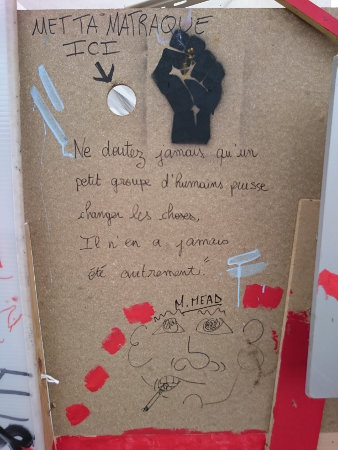 METTA MATRAQUE
ICI
Ne doutez jamais qu'un
petit groupe d'humains puisse
changer les choses,
Il n'en a jamais
été autrement."
M. MEAD